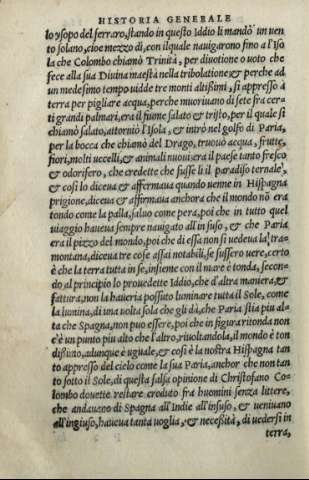 HISTORIA GENERALE
lo ysopo del ferraro, stando in questo Iddio li mandò un uen
to solano, cioe mezzo di, con ilquale nauigarono fino a l'Iso
la che Colombo chiamò Trinità, per diuotione o uoto che
fece alla sua Diuina maestà nella tribolatione & perche ad
un medesimo tempo uidde tre monti altißimi, si appressò à
terra per pigliare acqua, perche moriuano di sete fra cer-
ti grandi palmari, era il fiume salato & tristo, per il quale si
chiamò salato, attorniò l'Isola, & intrò nel golfo di Paria,
per la bocca che chiamò del Drago, truouò acqua, frutte,
fiori, molti uccelli, & animali nuoui era il paese tanto fresco
& odorifero, che credette che fusse li il paradiso ternale,
& così lo diceua & affermaua quando uenne in Hispagna
prigione, diceua & affirmaua anchora che il mondo nō era
tondo come la palla, saluo come pera, poi che in tutto quel
uiaggio haueua sempre nauigato all'in suso, & che Paria
era il pizzo del mondo, poi che di essa non si uedeua la tra-
montana, diceua tre cose assai notabili, se fussero uere, certo
è che la terra tutta in se, insieme con il mare è tonda, secon-
do al principio lo prouedette Iddio, che d'altra maniera, &
fattura, non la haueria possuto luminare tutta il Sole, come
la lumina, di una uolta sola che gli dà, che Paria stia piu al-
ta che Spagna, non puo essere, poi che in figura ritonda non
c'è un punto piu alto che l'altro, riuoltandola, il mondo è ton
dißimo, adunque è uguale, & così è la nostra Hispagna tan
to appresso del cielo come la sua Paria, anchor che non tan
to sotto il Sole, di questa falsa opinione di Christofano Co-
lombo douette restare creduto fra huomini senza littere,
che andauano di Spagna all'Indie all'insuso, & ueniuano
all'ingiuso, haueua tanta uoglia, & neceßità, di uedersi in
terra,